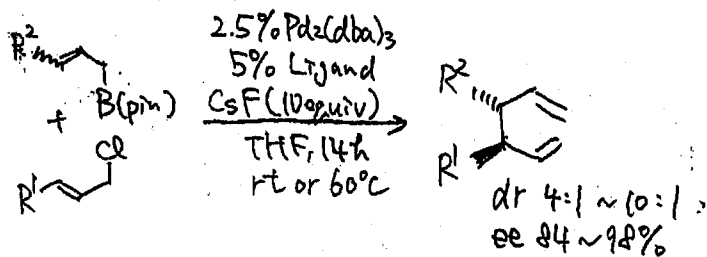 R² B(pin)
+
R¹ Cl
2.5% Pd2(dba)3
5% Ligand
CsF (10 equiv)
THF, 14h
rt or 60°C
R²
R¹
dr 4:1 ~ 10:1
ee 84 ~ 98%